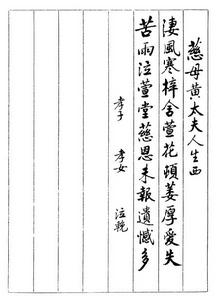 慈母黄太夫人生西
淒風寒梓舍萱花頓萎厚愛失
苦雨泣萱堂慈恩未報遺憾多
孝子 孝女 泣輓